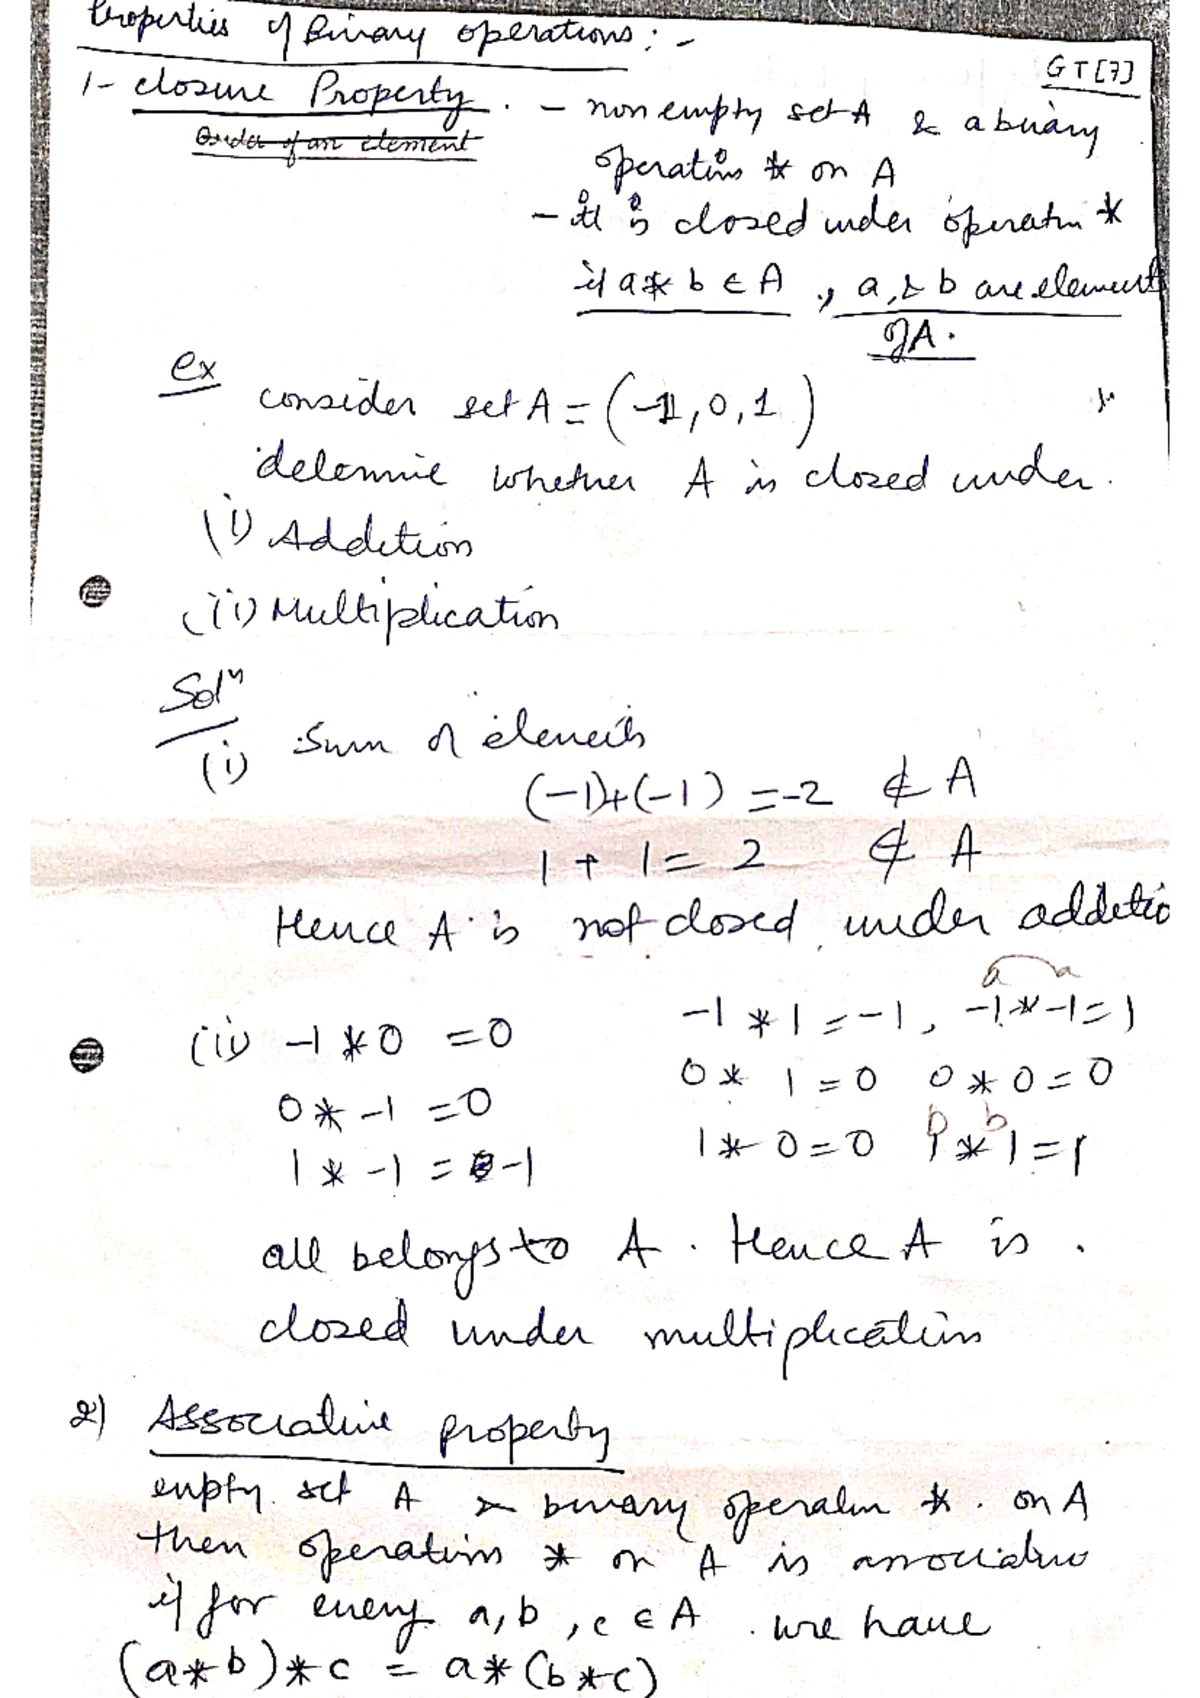 Properties of Binary operations:-
GT[7]
1- closure Property. - non empty set A & a binary
Order of an element
operations * on A
- it is closed under operatn *
if a * b ∈ A , a, & b are element
of A.
ex
consider set A = (-1, 0, 1 )
determie whether A is closed under.
(i) Addition
(ii) Multiplication
Solⁿ
(i) Sum of elements
(-1)+(-1) = -2 ∉ A
1 + 1 = 2 ∉ A
Hence A is not closed under additio
a a
(ii) -1 * 0 = 0 -1 * 1 = -1, -1 * -1 = 1
0 * -1 = 0 0 * 1 = 0 0 * 0 = 0
b b
1 * -1 = -1 1 * 0 = 0 1 * 1 = 1
all belongs to A. Hence A is.
closed under multiplication
2) Associative property
empty set A & binary operation *. on A
then operations * on A is associative
if for every a, b, c ∈ A. we have
(a * b) * c = a * (b * c)